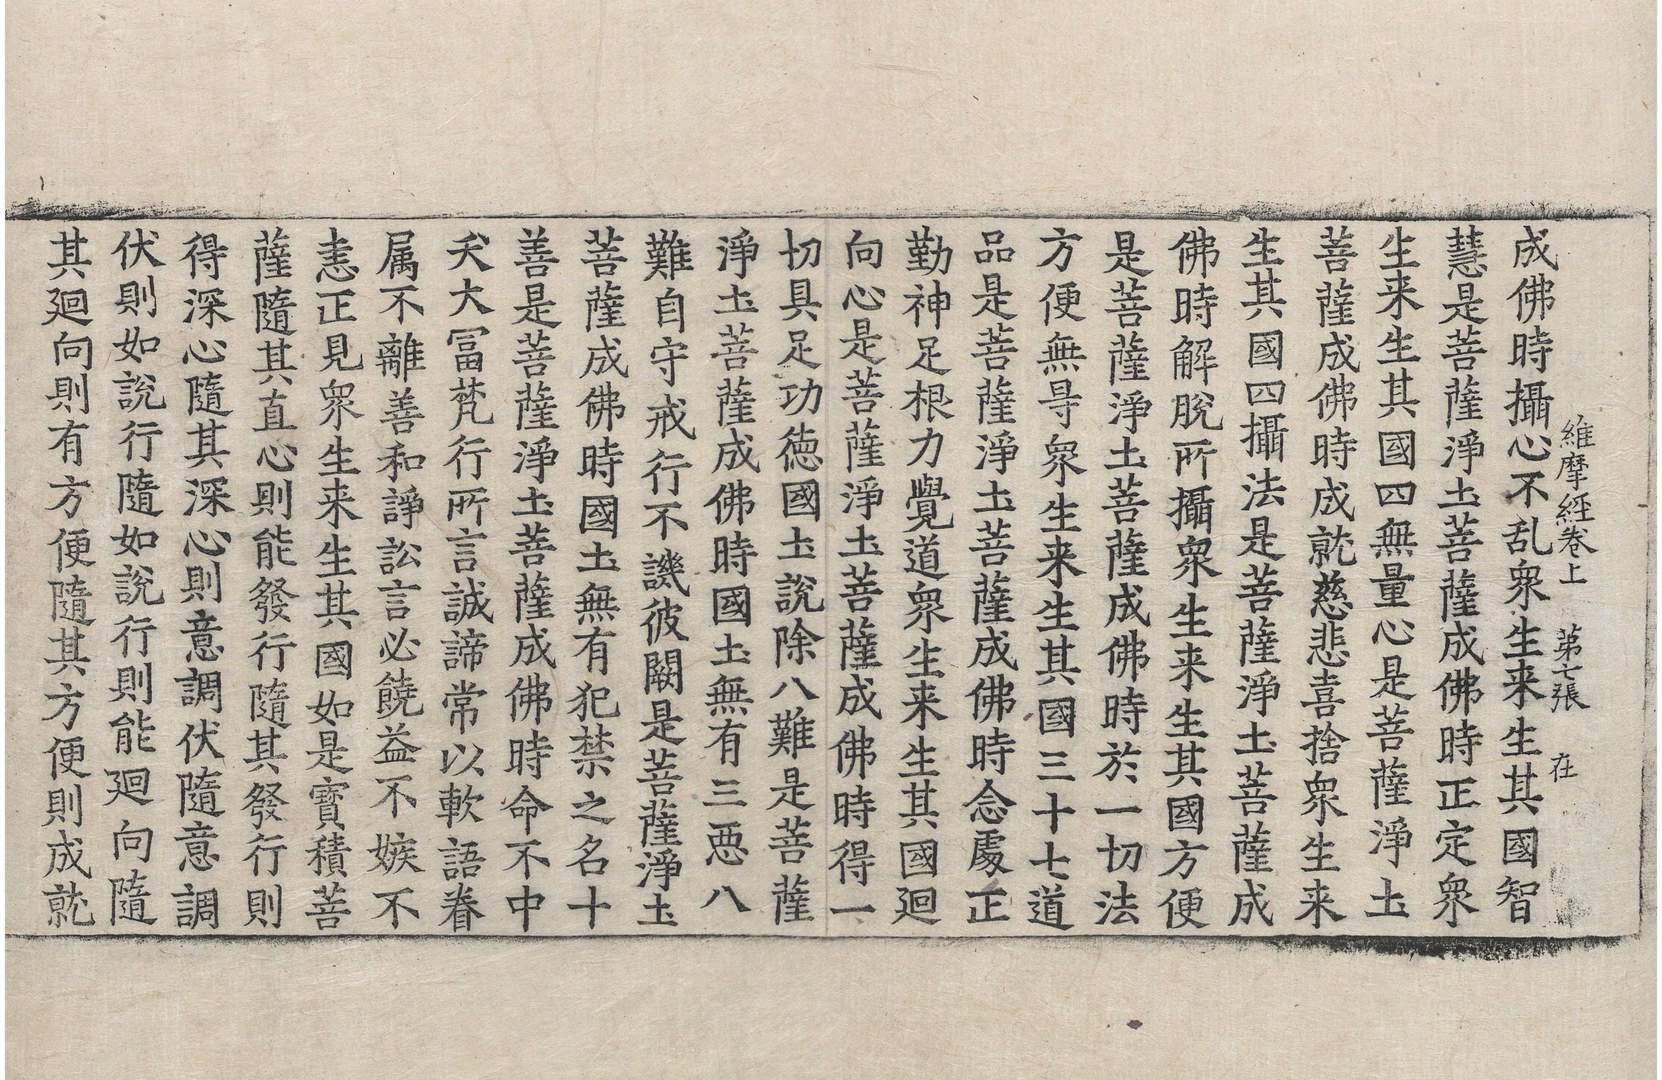 維摩經卷上 第七張 在
成佛時攝心不乱衆生来生其國智
慧是菩薩淨土菩薩成佛時正定衆
生来生其國四無量心是菩薩淨土
菩薩成佛時成就慈悲喜捨衆生来
生其國四攝法是菩薩淨土菩薩成
佛時解脫所攝衆生来生其國方便
是菩薩淨土菩薩成佛時於一切法
方便無㝵衆生来生其國三十七道
品是菩薩淨土菩薩成佛時念處正
勤神足根力覺道衆生来生其國廻
向心是菩薩淨土菩薩成佛時得一
切具足功德國土說除八難是菩薩
淨土菩薩成佛時國土無有三惡八
難自守戒行不譏彼闕是菩薩淨土
菩薩成佛時國土無有犯禁之名十
善是菩薩淨土菩薩成佛時命不中
夭大冨梵行所言誠諦常以軟語眷
属不離善和諍訟言必饒益不嫉不
恚正見衆生来生其國如是寶積菩
薩隨其直心則能發行隨其發行則
得深心隨其深心則意調伏隨意調
伏則如說行隨如說行則能廻向隨
其廻向則有方便隨其方便則成就